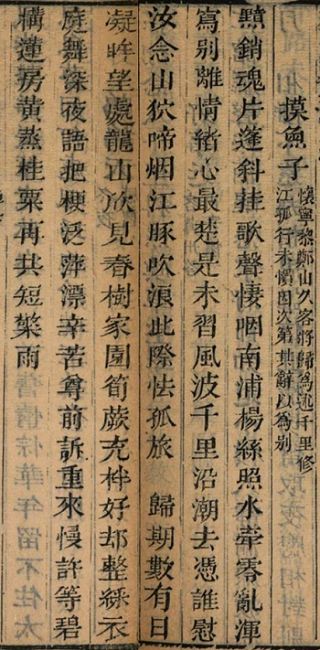 摸魚子
懷寧黎鄭山久客將歸為述千里修
江孤行未慣因次第其辭以為别
黯銷魂片蓬斜挂歌聲悽咽南浦楊絲照水牽零亂渾
寫别離情緒心最楚是未習風波千里沿潮去憑誰慰
汝念山狖啼烟江豚吹浪此際怯孤旅　歸期數有日
凝眸望處龍山欣見春樹家園筍蕨充柈好却整綵衣
庭舞深夜語把梗泛萍漂辛苦尊前訴重來慢許等碧
橫蓮房黃蒸桂粟再共短檠雨